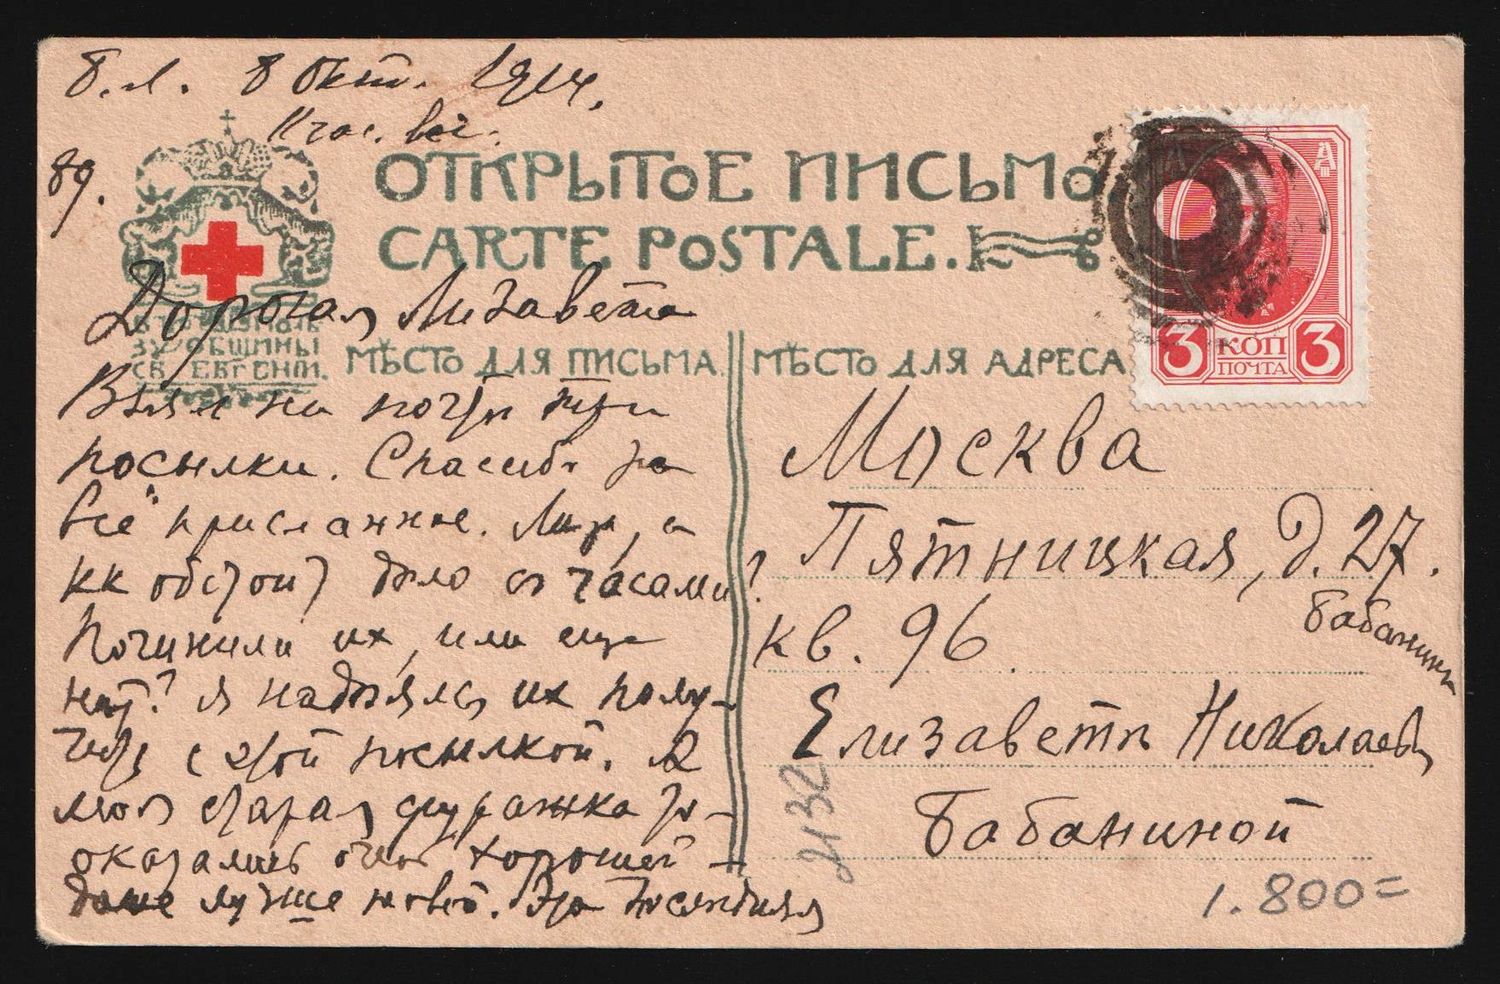 Б.Л. 8 Окт. 1914.
11 час. веч.
89.
ОТКРЫТОЕ ПИСЬМО
CARTE POSTALE.
ЗУ ОБЩИНЫ
СВ. ЕВГЕНIИ.
МѢСТО ДЛЯ ПИСЬМА.
МѢСТО ДЛЯ АДРЕСА
3 КОП 3
ПОЧТА
Дорогая Лизавета
Взял на почтѣ три
посылки. Спасибо за
всё присланное. Лиза, а
как обстоит дѣло съ часами?
Починили их, или еще
нѣт? Я надѣялся их полу-
чить с этой посылкой. А
моя старая фуражка
оказалась очень хорошей -
даже лучше новой. Эта
Москва
Пятницкая, д. 27.
кв. 96.
Бабанина
Елизаветѣ Николаевнѣ
Бабаниной
2132
1.800=